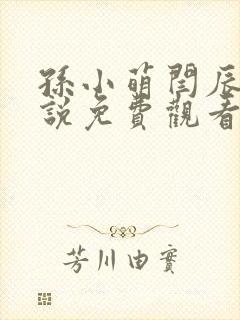 孫小萌閆辰
說免費觀看
芳川由實